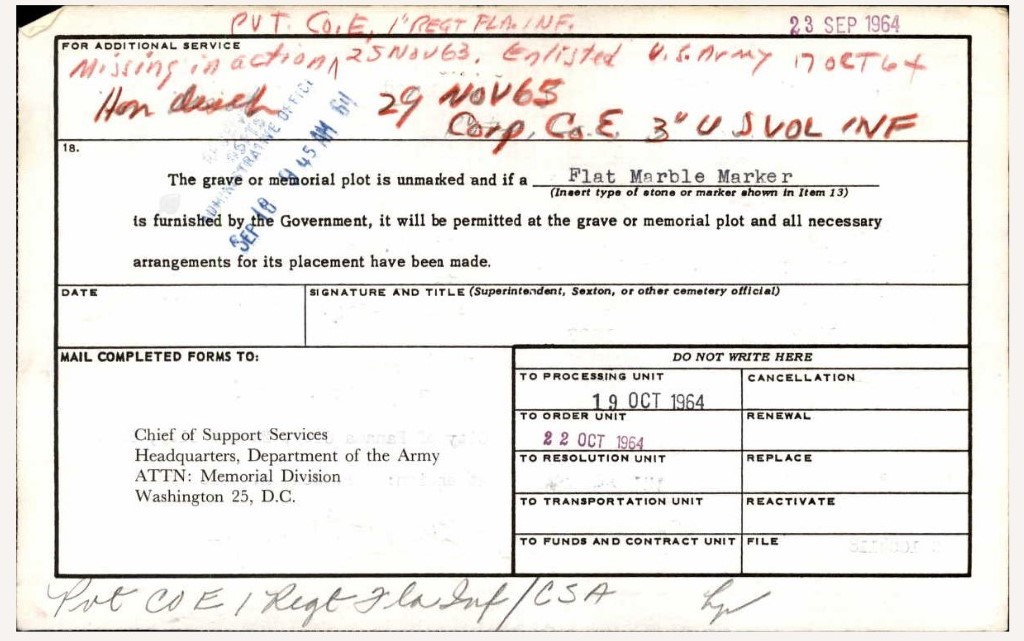 PVT. CO. E, 1" REGT FLA. INF.
23 SEP 1964
FOR ADDITIONAL SERVICE
Missing in action, 25 NOV 63. Enlisted U.S. Army 17 OCT 64
Hon disch 29 NOV 65
Corp, Co. E. 3" U S VOL INF
ADMINISTRATIVE OFFICE
SEP 18 9 45 AM 64
18.
The grave or memorial plot is unmarked and if a Flat Marble Marker
(Insert type of stone or marker shown in Item 13)
is furnished by the Government, it will be permitted at the grave or memorial plot and all necessary
arrangements for its placement have been made.
DATE
SIGNATURE AND TITLE (Superintendent, Sexton, or other cemetery official)
MAIL COMPLETED FORMS TO:
Chief of Support Services
Headquarters, Department of the Army
ATTN: Memorial Division
Washington 25, D.C.
DO NOT WRITE HERE
TO PROCESSING UNIT
19 OCT 1964
CANCELLATION
TO ORDER UNIT
22 OCT 1964
RENEWAL
TO RESOLUTION UNIT
REPLACE
TO TRANSPORTATION UNIT
REACTIVATE
TO FUNDS AND CONTRACT UNIT
FILE
Pvt CO E 1 Regt Fla Inf/CSA